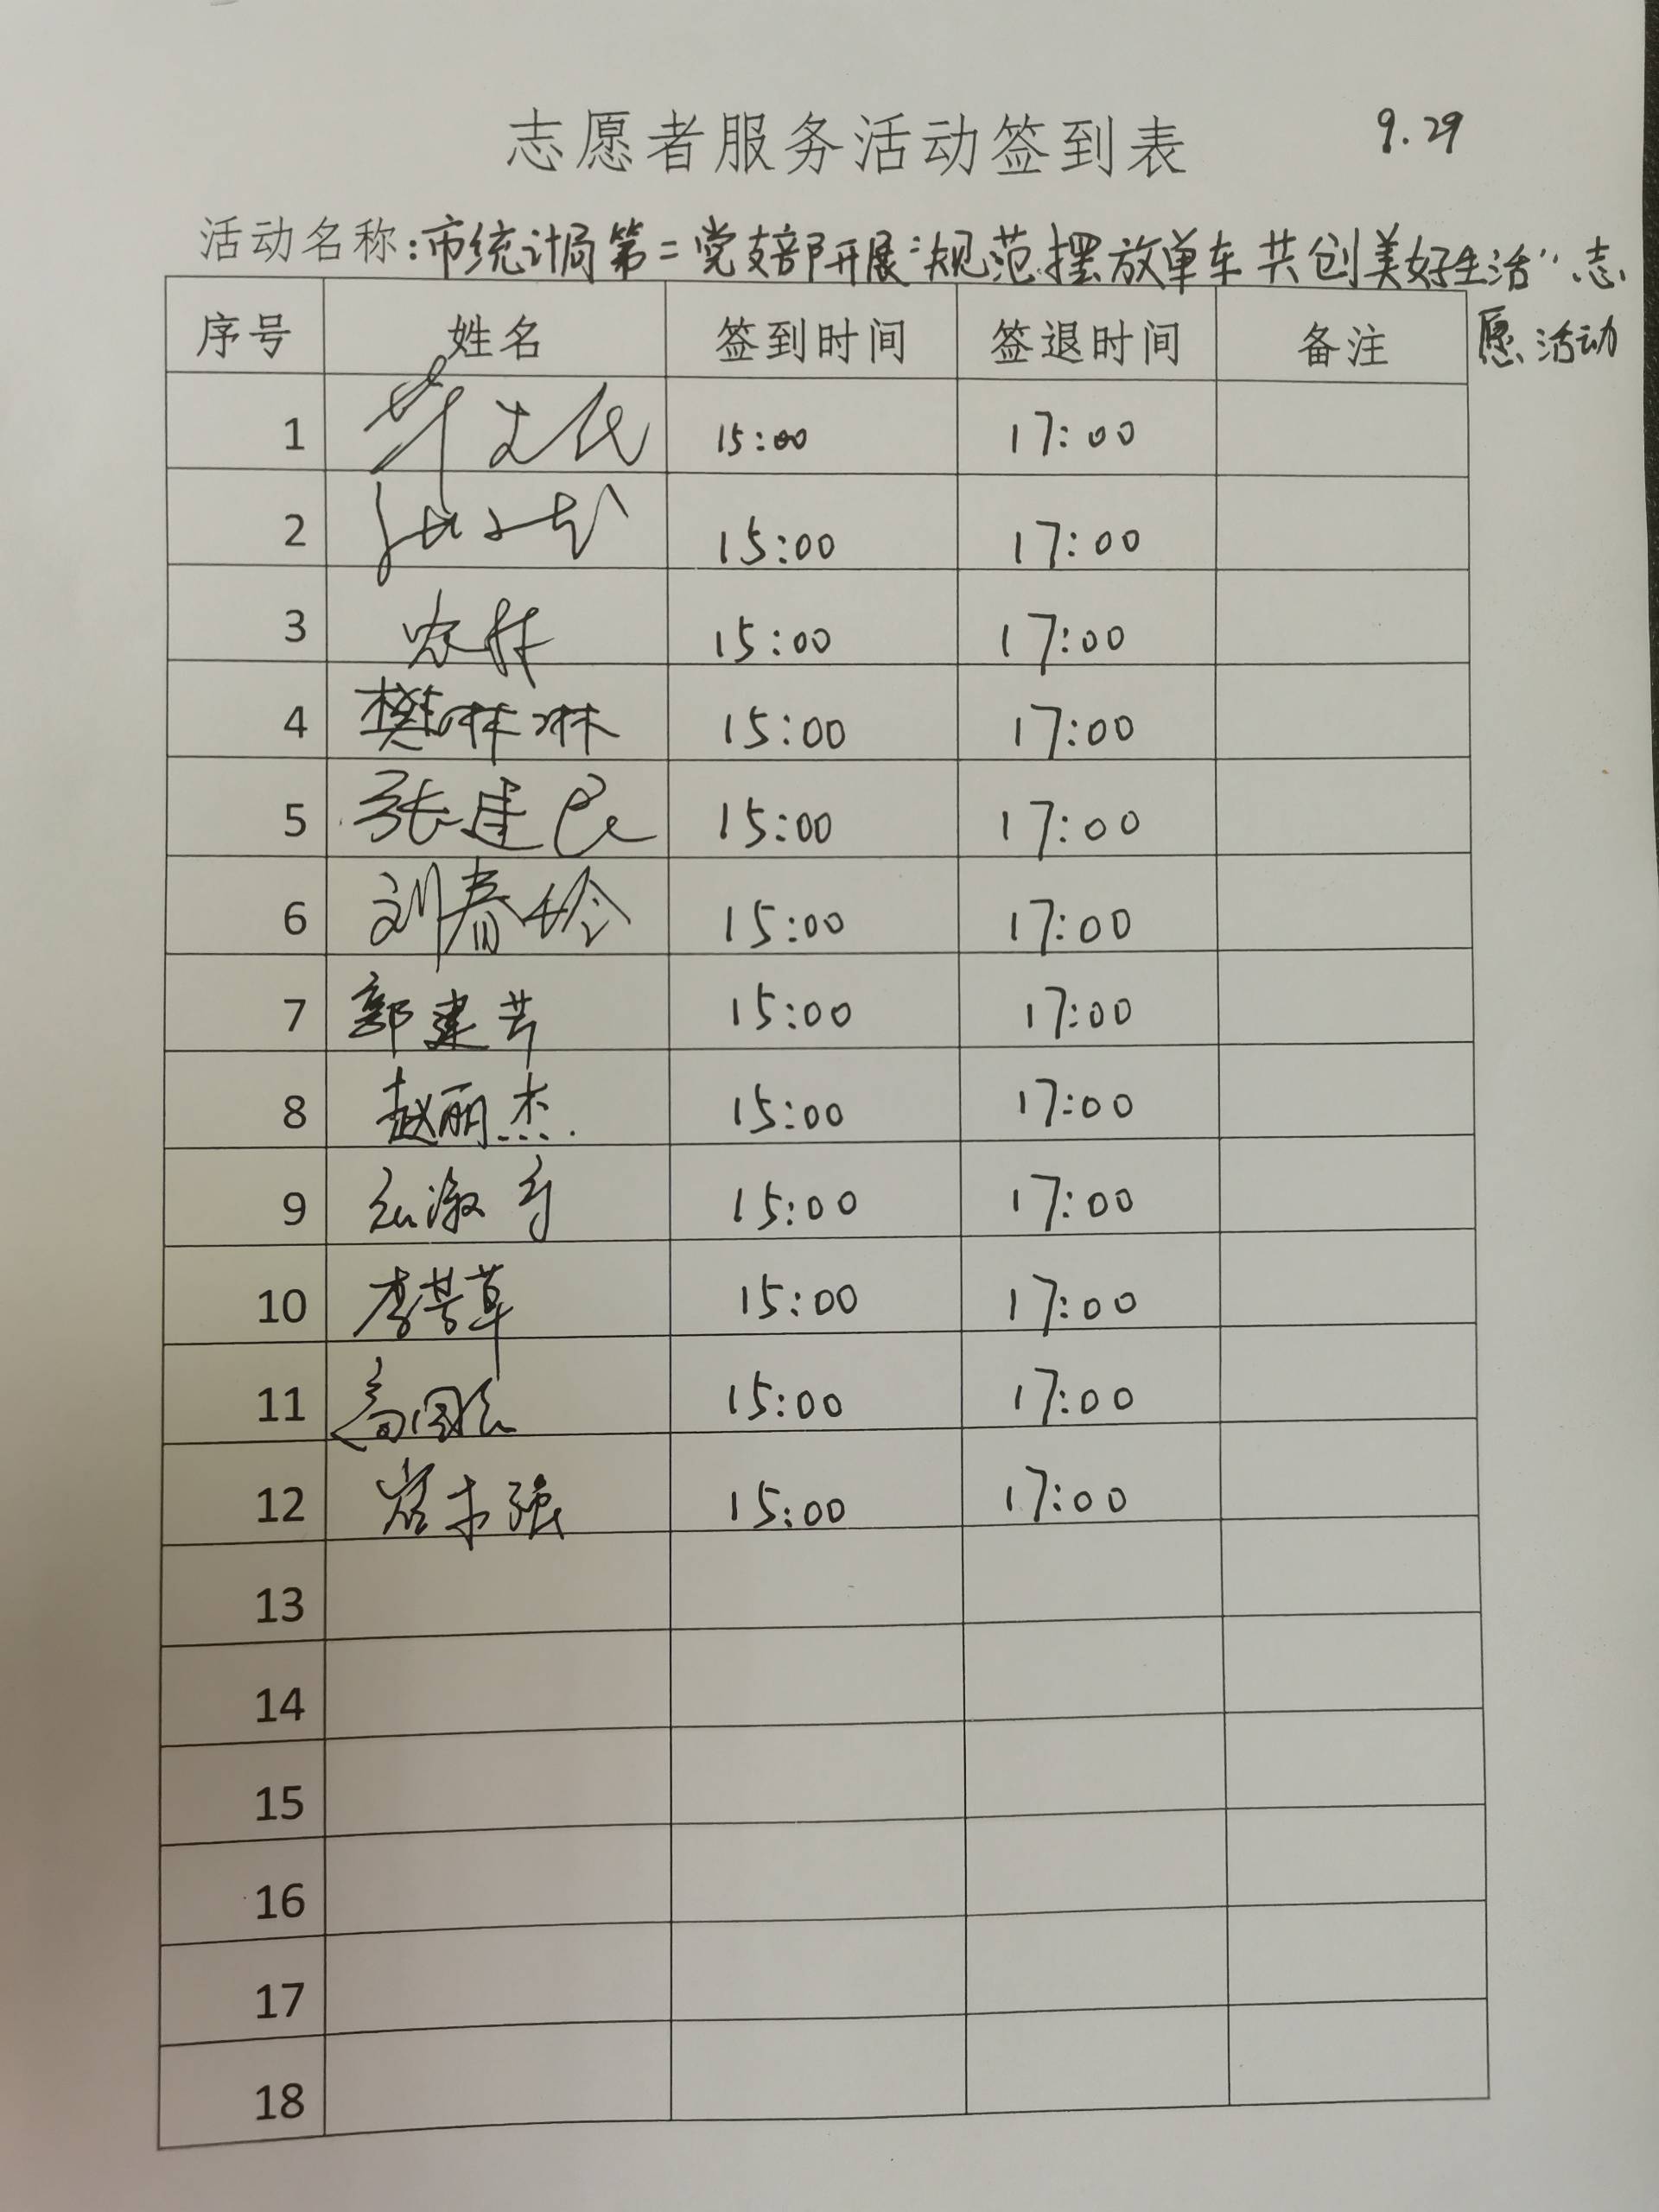 志愿者服务活动签到表 9.29
活动名称:市统计局第二党支部开展“规范摆放单车 共创美好生活”志
愿活动
序号 姓名 签到时间 签退时间 备注
1 15:00 17:00
2 15:00 17:00
3 15:00 17:00
4 樊琳琳 15:00 17:00
5 张建良 15:00 17:00
6 刘春玲 15:00 17:00
7 郭建芳 15:00 17:00
8 赵丽杰 15:00 17:00
9 15:00 17:00
10 李芸草 15:00 17:00
11 15:00 17:00
12 15:00 17:00
13
14
15
16
17
18